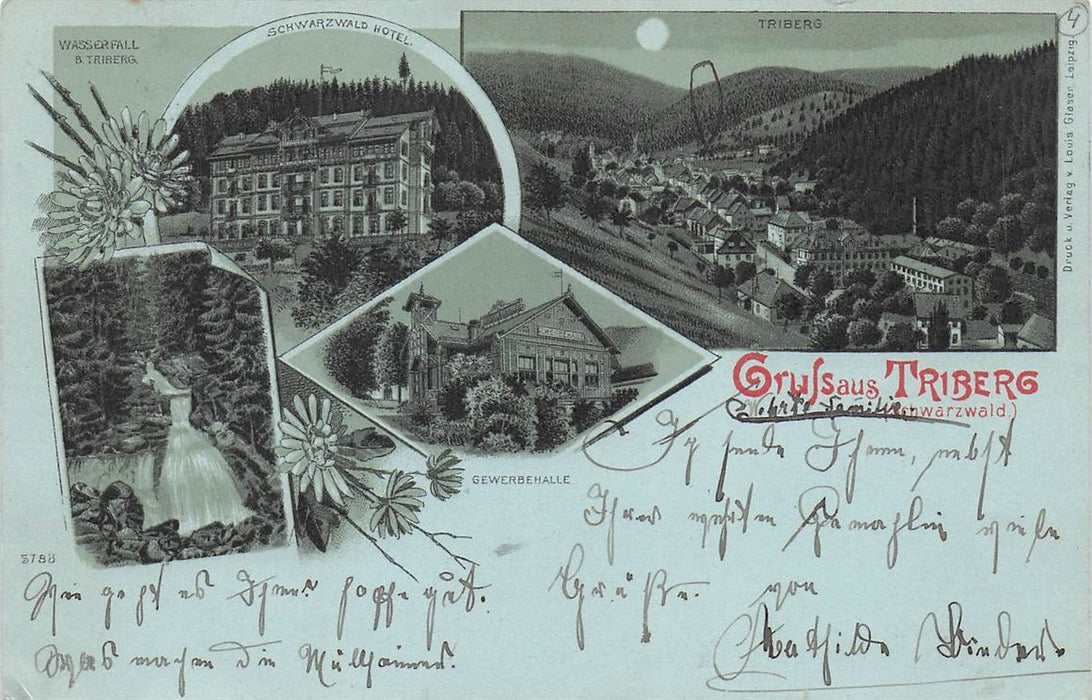 WASSERFALL
B. TRIBERG.
SCHWARZWALD HOTEL.
TRIBERG
4
Druck u. Verlag v. Louis Glaser, Leipzig.
GEWERBEHALLE
GEWERBEHALLE
5788
Gruss aus TRIBERG
(Schwarzwald.)
Familie
sende Ihnen, nebst
Ihrer werten Gemahlin viele
Grüße. von
Mathilde Binder.
Wie geht es Ihnen hoffe gut.
Was machen die Müllheimer.